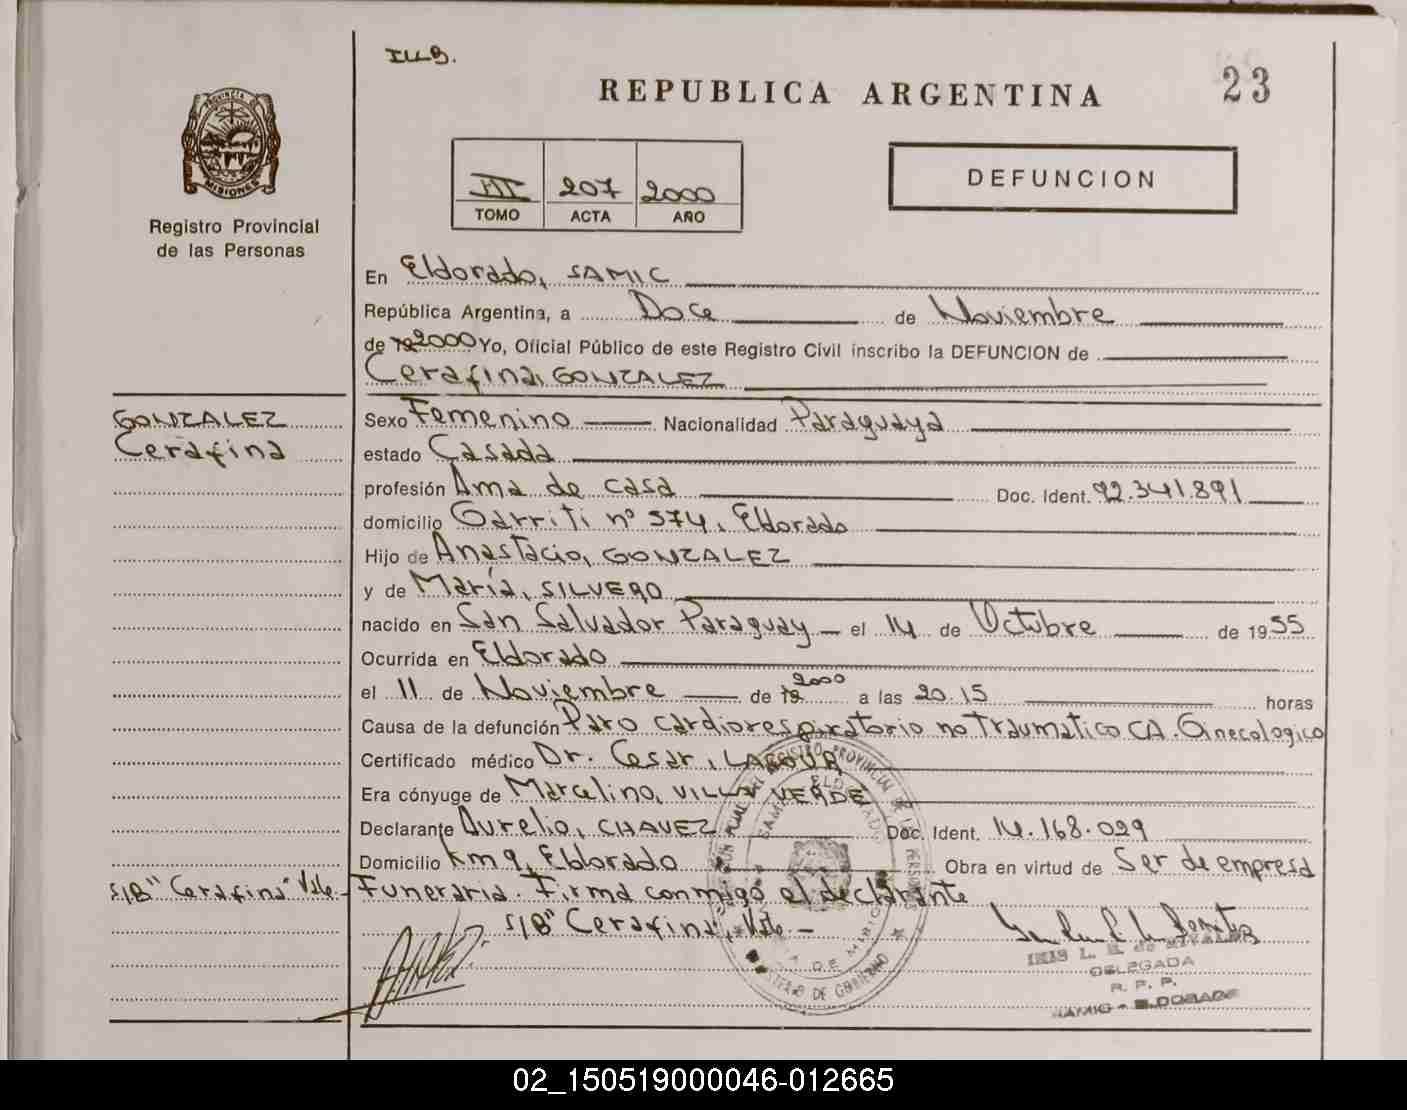 ILLB.
REPUBLICA ARGENTINA
23
PROVINCIA DE
MISIONES
Registro Provincial
de las Personas
III 207 2000
TOMO ACTA AÑO
DEFUNCION
En Eldorado, SAMIC
República Argentina, a Doce de Noviembre
de 19 2000 Yo, Oficial Público de este Registro Civil inscribo la DEFUNCION de
Cerafina, GONZALEZ
GONZALEZ
Cerafina
Sexo Femenino Nacionalidad Paraguaya
estado Casada
profesión Ama de casa Doc. Ident. 92.341.891
domicilio Garriti nº 574, Eldorado
Hijo de Anastacio, GONZALEZ
y de María, SILVERO
nacido en San Salvador Paraguay – el 14 de Octubre de 1955
Ocurrida en Eldorado
el 11 de Noviembre de 19 2000 a las 20.15 horas
Causa de la defunción Paro cardiorespiratorio no Traumatico CA. Ginecologico
Certificado médico Dr. Cesar,
Era cónyuge de Marcelino, VILLA VERDE
Declarante Aurelio, CHAVEZ Doc. Ident. 14.168.029
Domicilio Km 9, Eldorado Obra en virtud de Ser de empresa
S/B "Cerafina" Vale.-
Funeraria. Firma conmigo el declarante
S/B "Cerafina", Vale.-
DELEGADA
R. P. P.
SAMIC - ELDORADO
02_150519000046-012665